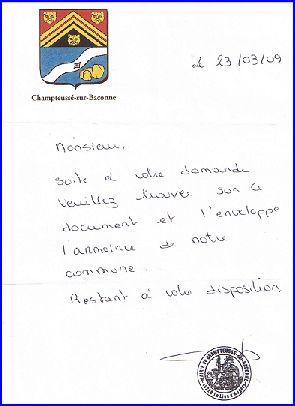 Champteussé-sur-Baconne
Le 23/03/09
Monsieur,
Suite à votre demande
veuillez trouver sur ce
document et l'enveloppe
l'armoirie de notre
commune.
Restant à votre disposition